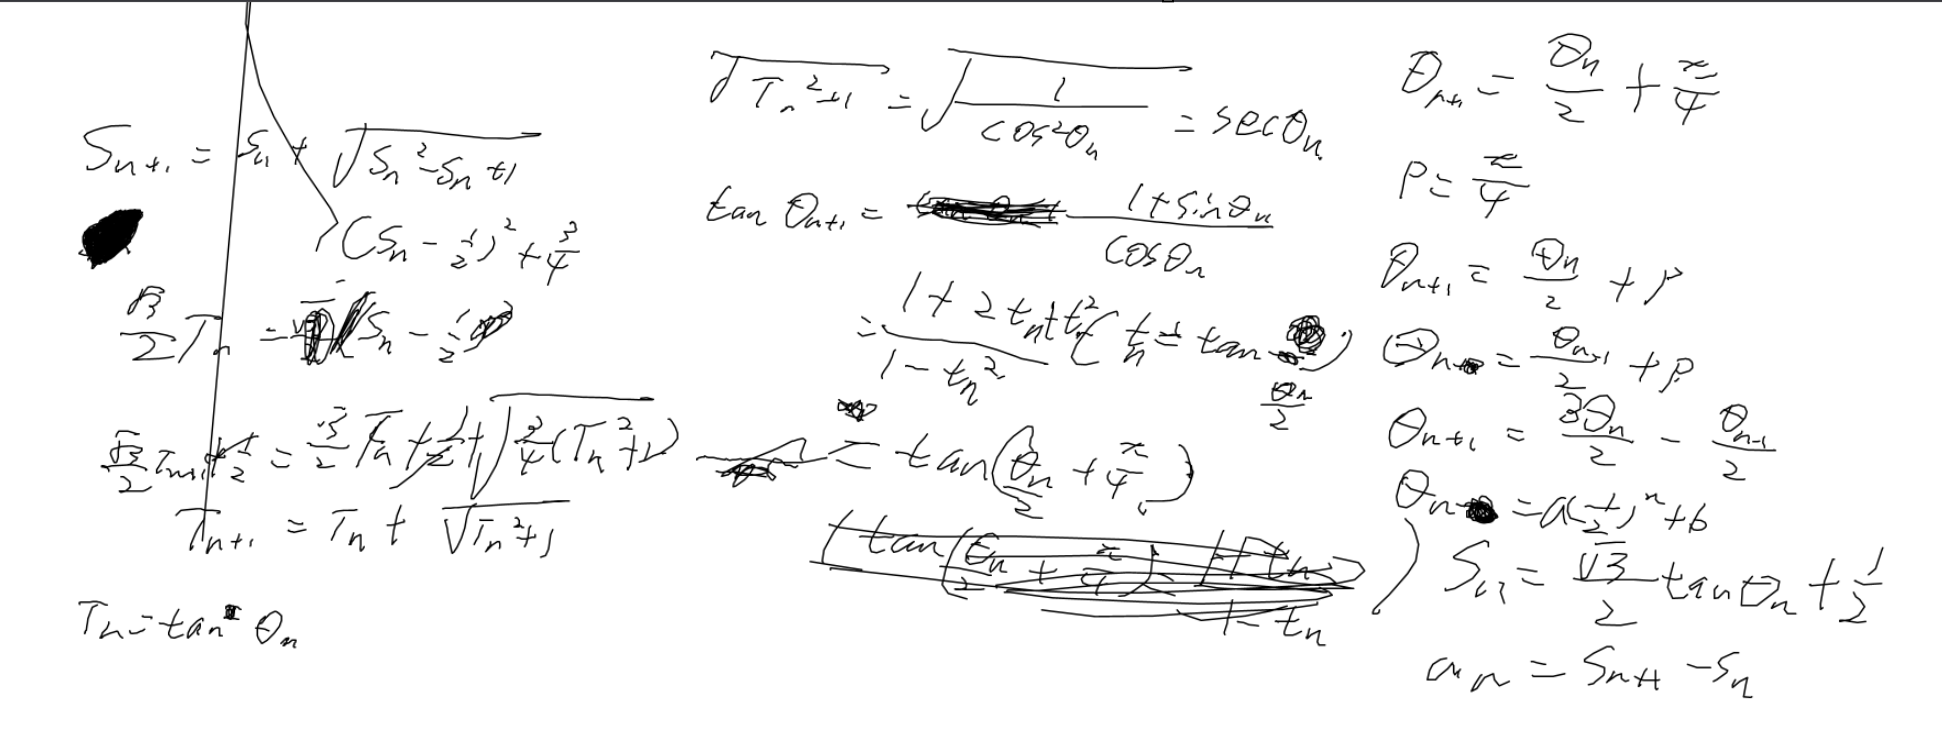 S_{n+1} = S_n + √(S_n² - S_n + 1)
(S_n - 1/2)² + 3/4
√3/2 T_n = S_n - 1/2
√3/2 T_{n+1} + 1/2 = √3/2 T_n + 1/2 + √(3/4 (T_n² + 1))
T_{n+1} = T_n + √(T_n² + 1)
T_n = tan θ_n
√(T_n² + 1) = √(1/cos²θ_n) = sec θ_n
tan θ_{n+1} = (1 + sin θ_n)/cos θ_n
= (1 + 2t_n + t_n²)/(1 - t_n²) (t_n = tan θ_n/2)
= tan(θ_n/2 + π/4)
θ_{n+1} = θ_n/2 + π/4
P = π/4
θ_{n+1} = θ_n/2 + P
θ_n = θ_{n-1}/2 + P
θ_{n+1} = 3θ_n/2 - θ_{n-1}/2
θ_n = a(1/2)^n + b
S_n = √3/2 tan θ_n + 1/2
a_n = S_{n+1} - S_n